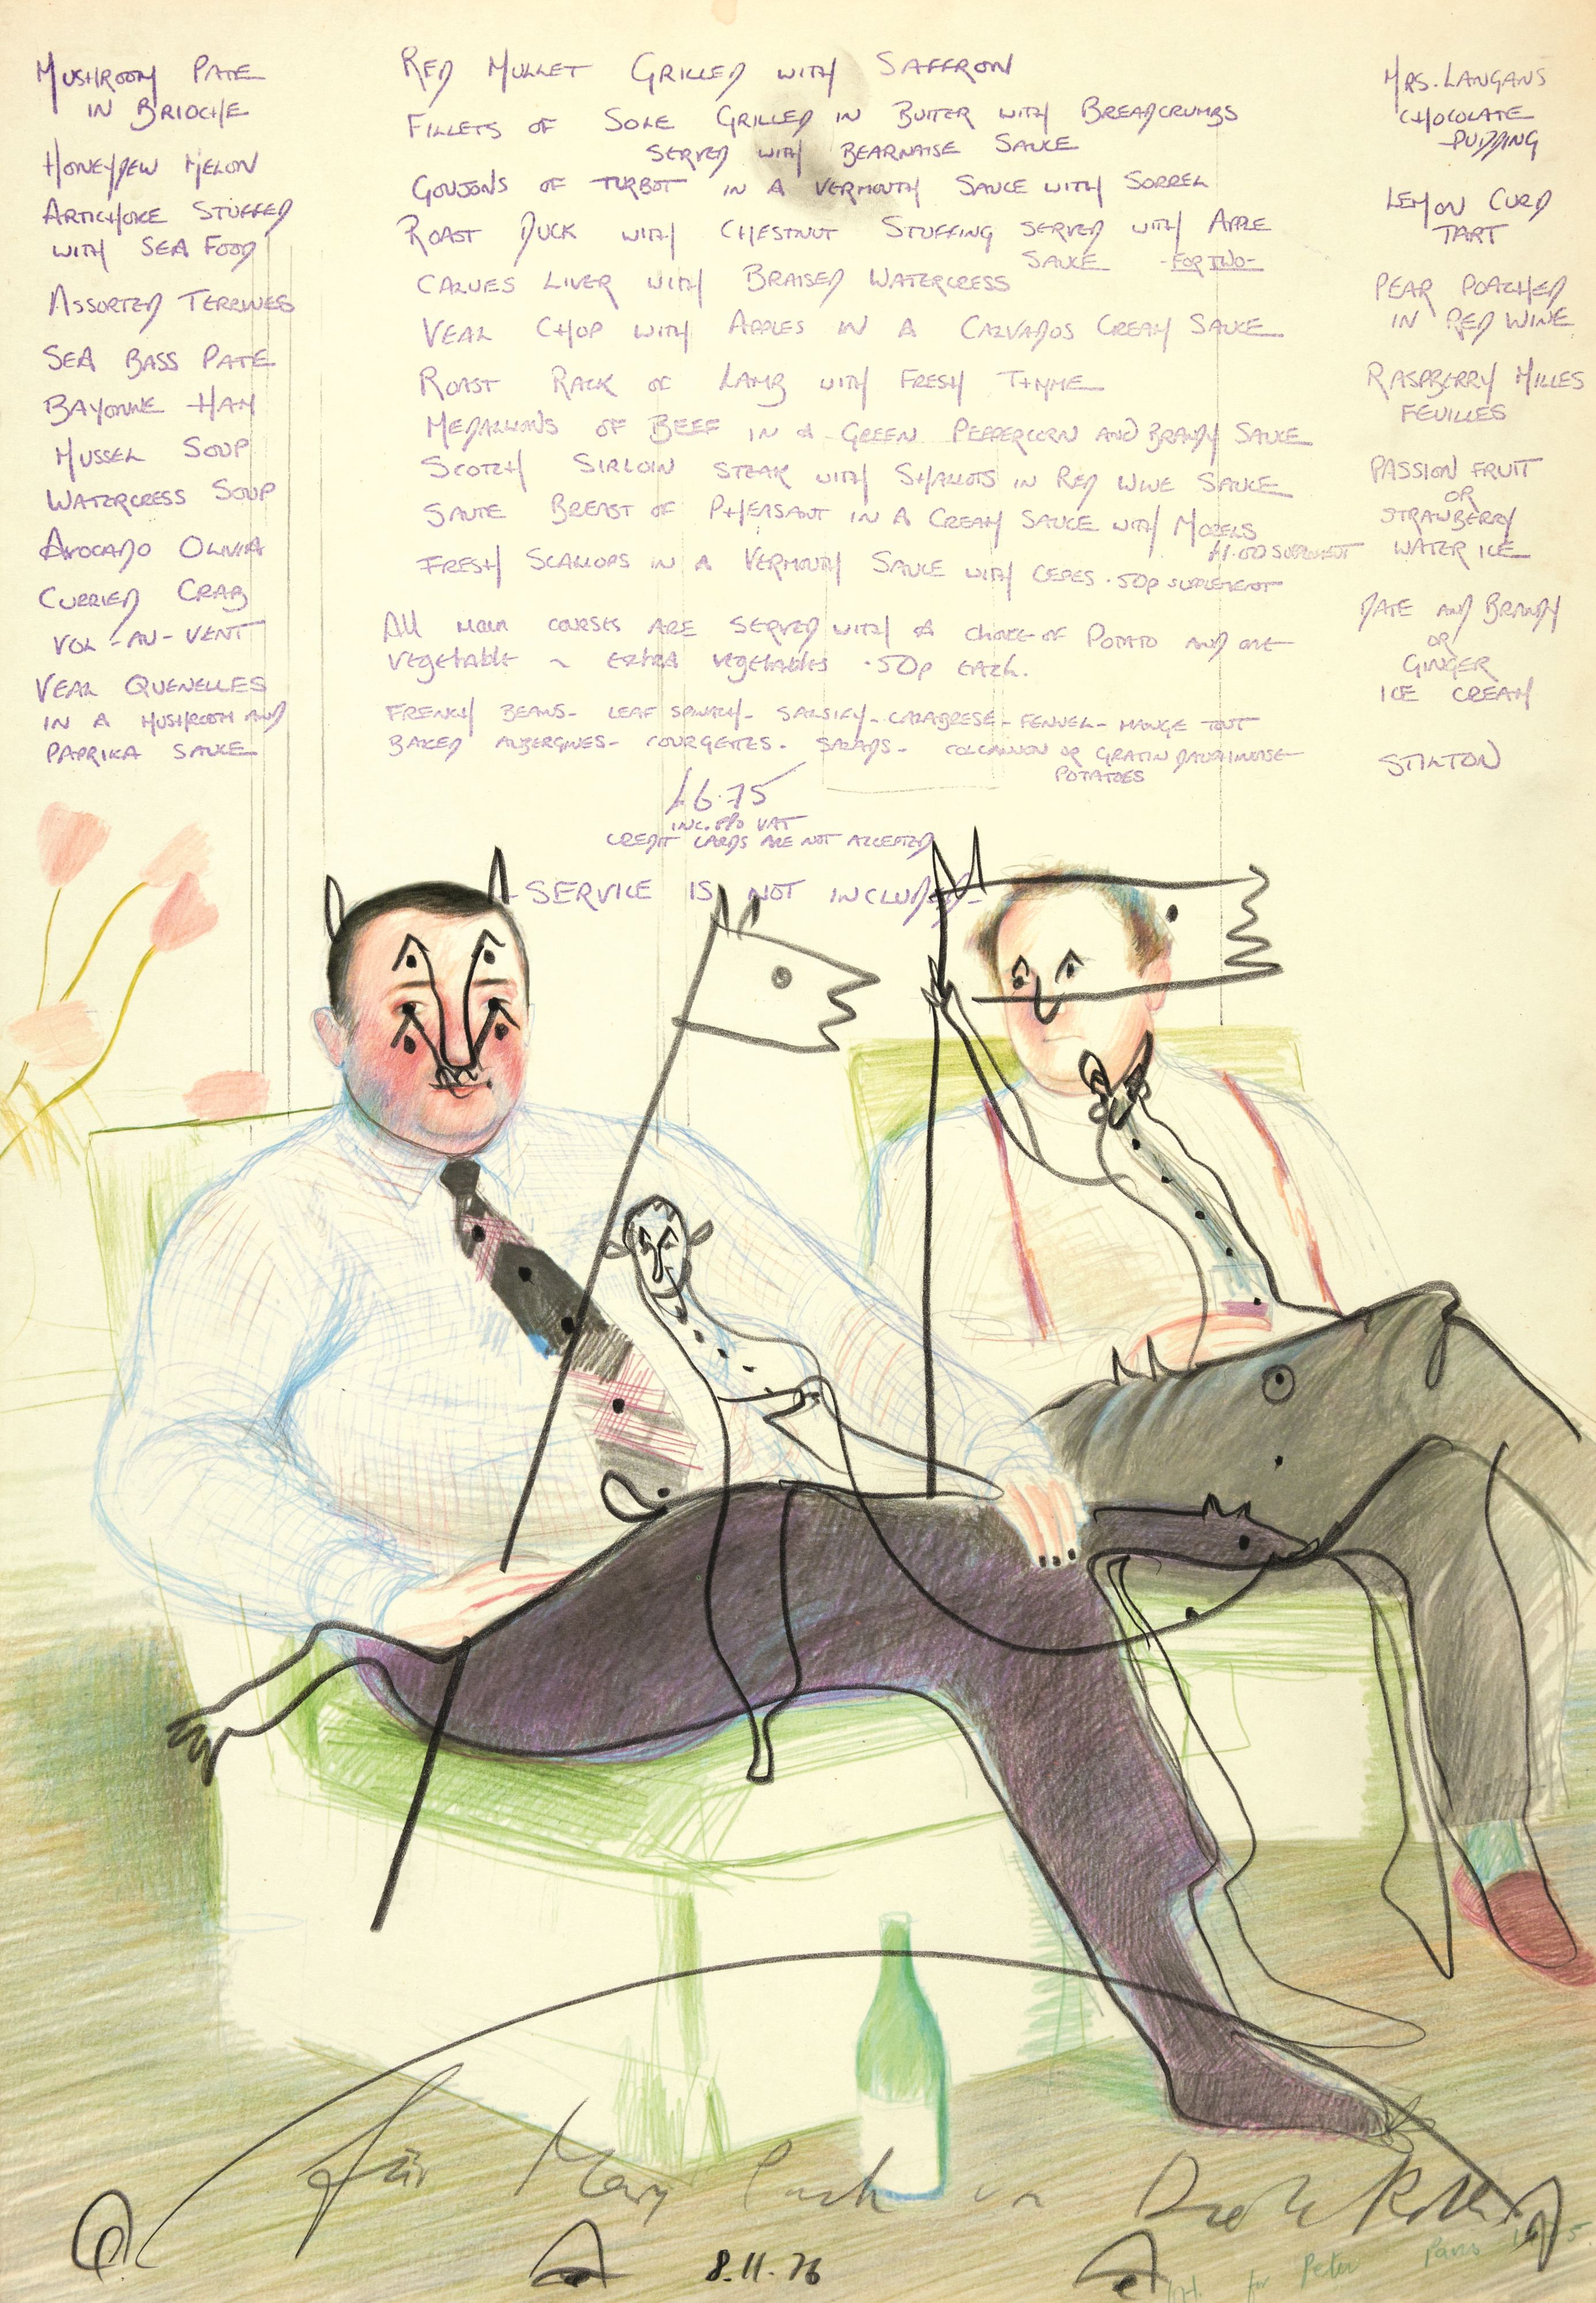 MUSHROOM PATE
IN BRIOCHE
HONEYDEW MELON
ARTICHOKE STUFFED
WITH SEA FOOD
ASSORTED TERRINES
SEA BASS PATE
BAYONNE HAM
MUSSEL SOUP
WATERCRESS SOUP
AVOCADO OLIVIA
CURRIED CRAB
VOL-AU-VENT
VEAL QUENELLES
IN A MUSHROOM AND
PAPRIKA SAUCE
RED MULLET GRILLED WITH SAFFRON
FILLETS OF SOLE GRILLED IN BUTTER WITH BREADCRUMBS
SERVED WITH BEARNAISE SAUCE
GOUJONS OF TURBOT IN A VERMOUTH SAUCE WITH SORREL
ROAST DUCK WITH CHESTNUT STUFFING SERVED WITH APPLE
SAUCE -FOR TWO-
CALVES LIVER WITH BRAISED WATERCRESS
VEAL CHOP WITH APPLES IN A CALVADOS CREAM SAUCE
ROAST RACK OF LAMB WITH FRESH THYME
MEDALLIONS OF BEEF IN A GREEN PEPPERCORN AND BRANDY SAUCE
SCOTCH SIRLOIN STEAK WITH SHALLOTS IN RED WINE SAUCE
SAUTE BREAST OF PHEASANT IN A CREAM SAUCE WITH MORELS
£1.00 SUPLEMENT
FRESH SCALLOPS IN A VERMOUTH SAUCE WITH CEPES .50p SUPLEMENT
All main courses ARE SERVED WITH A choice of Potato AND one
vegetable ~ extra vegetables .50p each.
FRENCH BEANS- LEAF SPINACH- SALSIFY- CALABRESE- FENNEL- MANGE TOUT
BAKED AUBERGINES- COURGETTES- SALADS- COLCANNON OR GRATIN DAUPHINOISE
POTATOES
£6.75
INC. 8% VAT
CREDIT CARDS ARE NOT ACCEPTED
-SERVICE IS NOT INCLUDED-
MRS. LANGANS
CHOCOLATE
PUDDING
LEMON CURD
TART
PEAR POACHED
IN RED WINE
RASPBERRY MILLES
FEUILLES
PASSION FRUIT
OR
STRAWBERRY
WATER ICE
DATE AND BRANDY
OR
GINGER
ICE CREAM
STILTON
für Mary
8.11.76
for Peter Paris